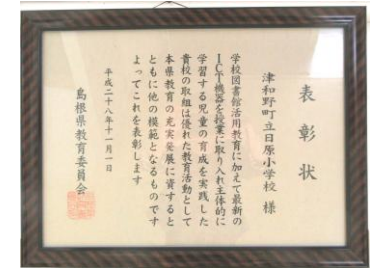 表彰状
津和野町立日原小学校 様
学校図書館活用教育に加えて最新の
ICT機器を授業に取り入れ主体的に
学習する児童の育成を実践した
貴校の取組は優れた教育活動として
本県教育の充実発展に資すると
ともに他の模範となるものです
よってこれを表彰します
平成二十八年十一月一日
島根県教育委員会